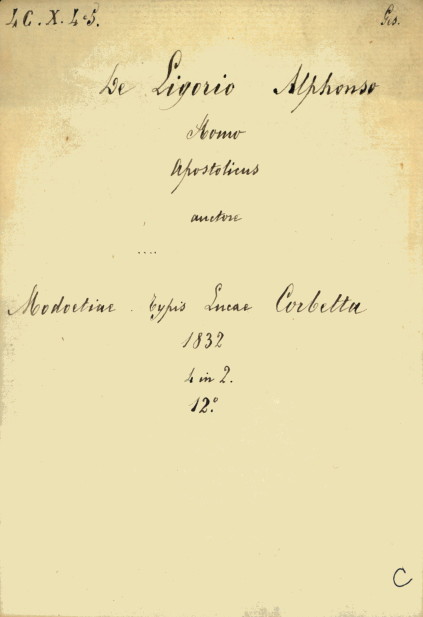 4 C. X. 4.5. Ges.
De Ligorio Alphonso
Homo
Apostolicus
auctore
....
Modoetiae. Typis Lucae Corbetta
1832
4 in 2.
12.°
C